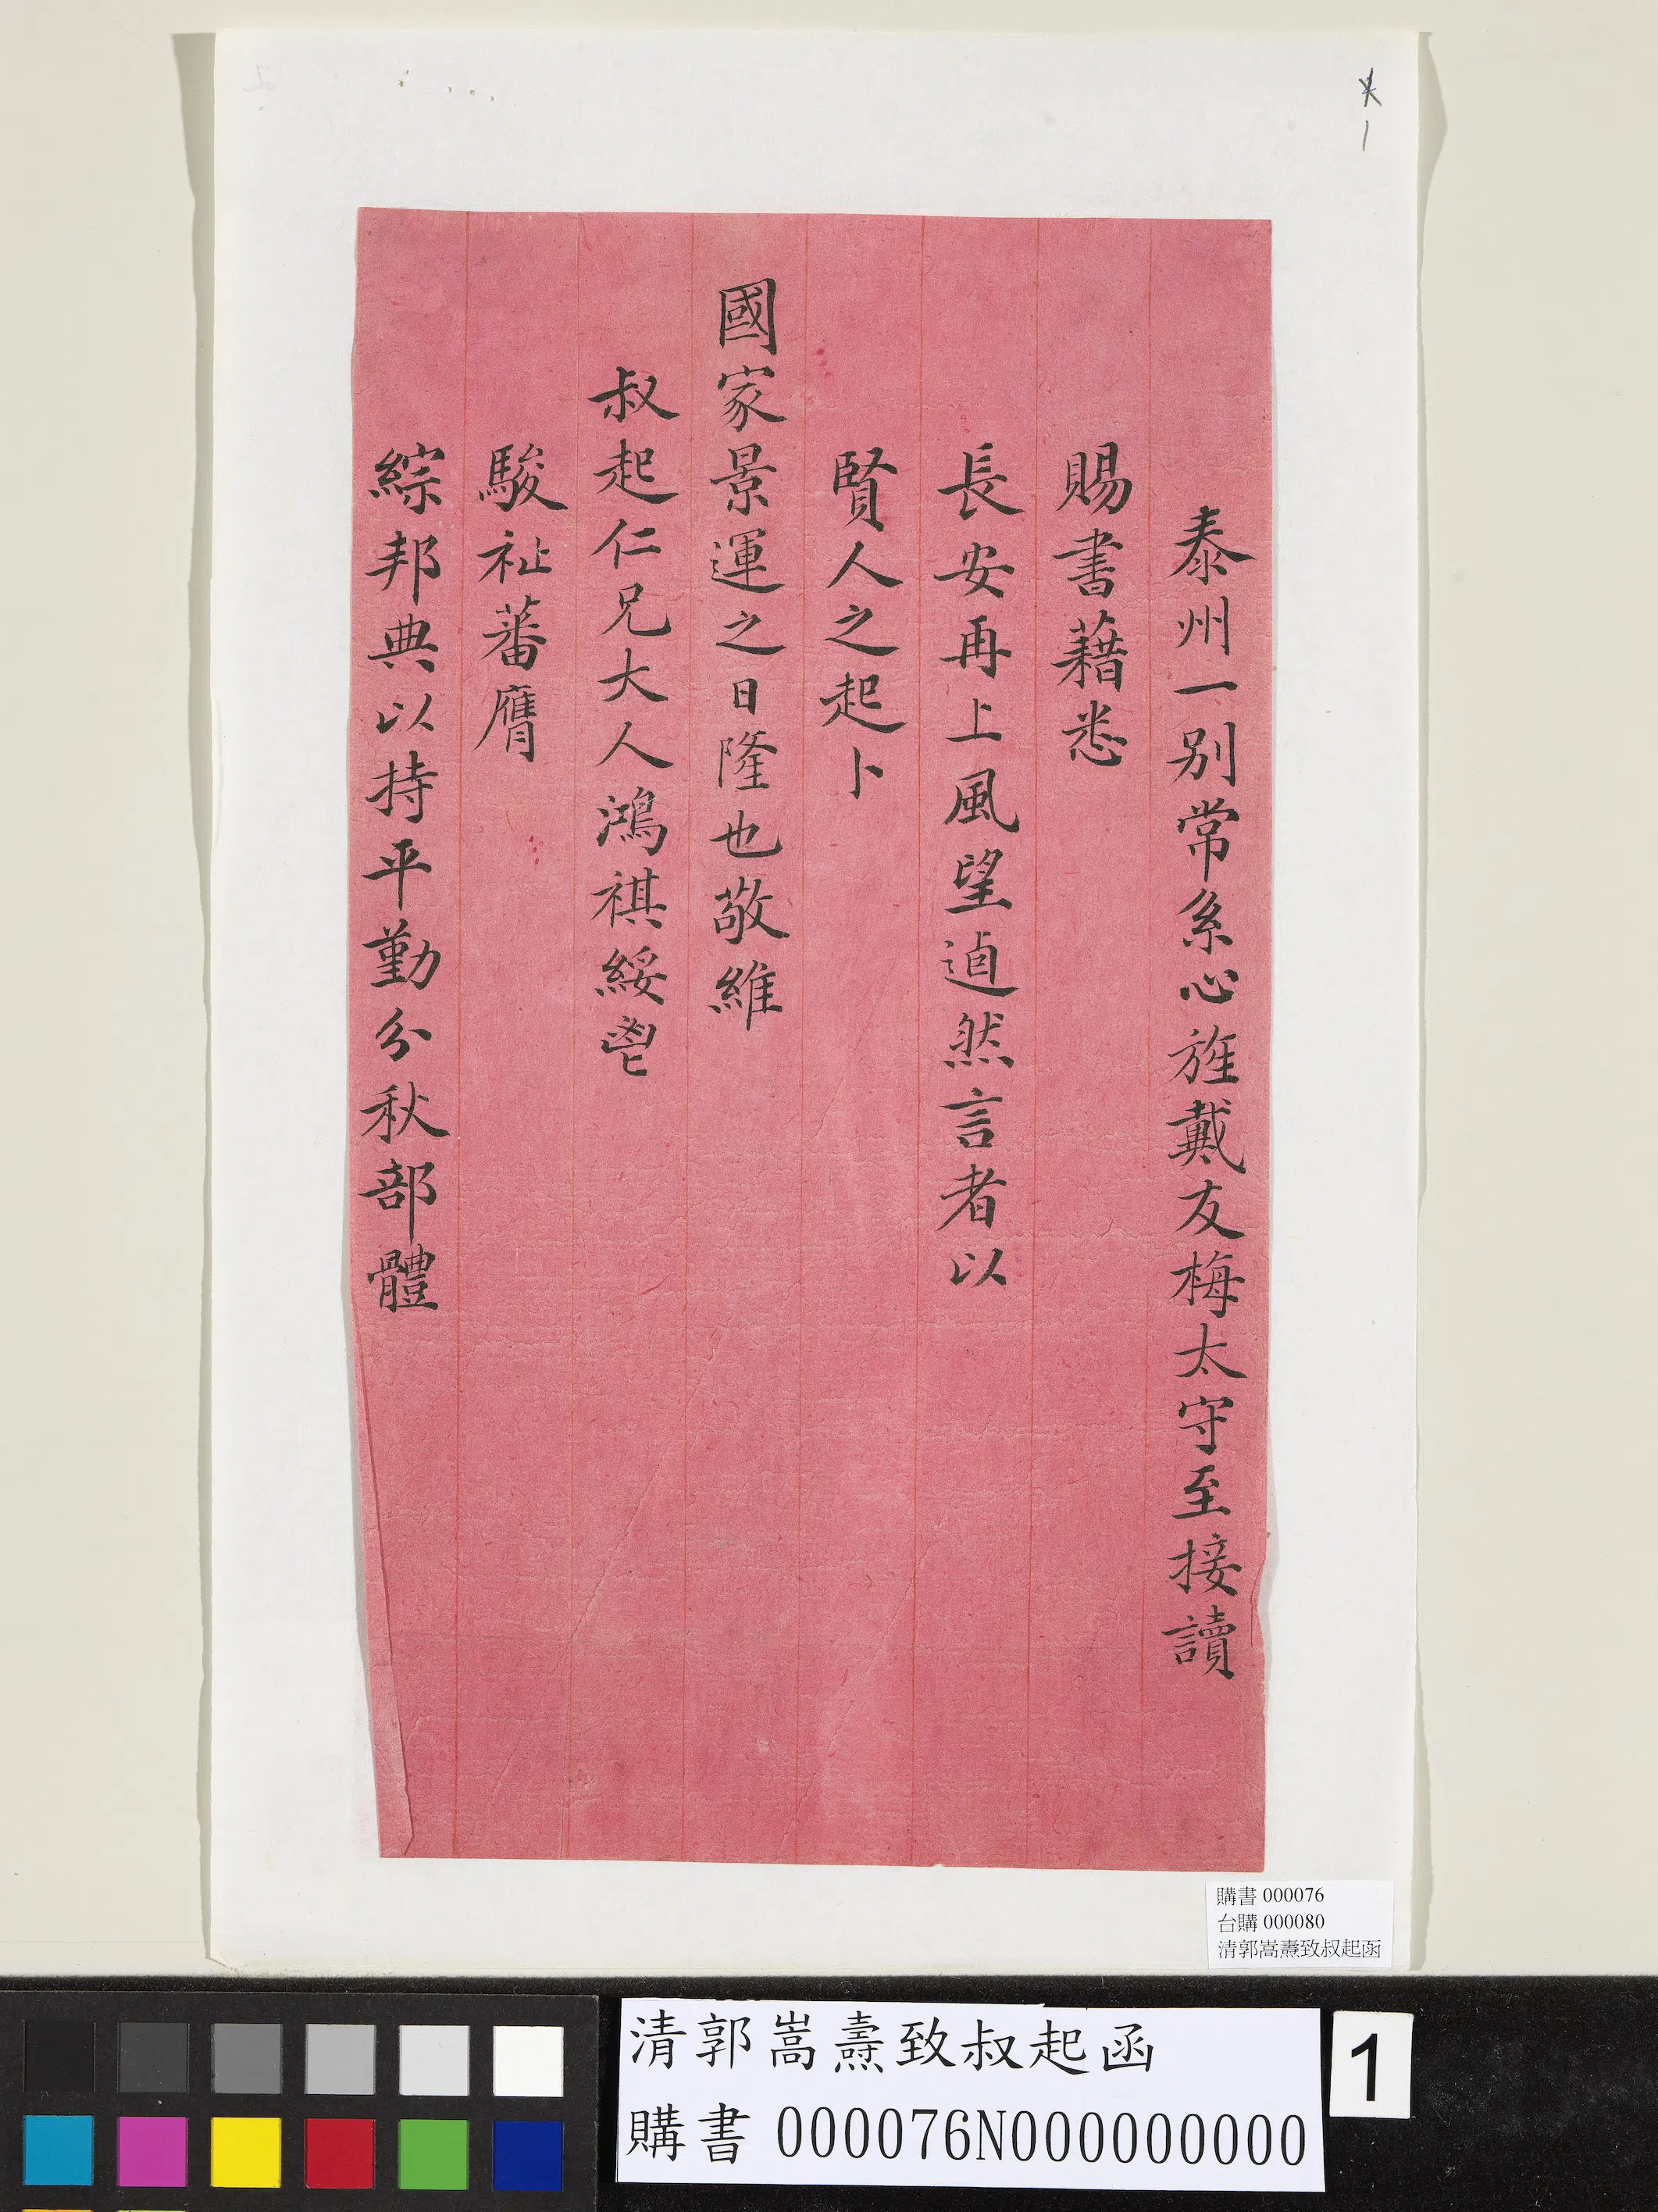 泰州一別常系心旌戴友梅太守至接讀
賜書藉悉
長安再上風望逌然言者以
賢人之起卜
國家景運之日隆也敬維
叔起仁兄大人鴻祺綏鬯
駿祉蕃膺
綜邦典以持平勤分秋部體
1
購書 000076
台購 000080
清郭嵩燾致叔起函
清郭嵩燾致叔起函
購書 000076N000000000
1